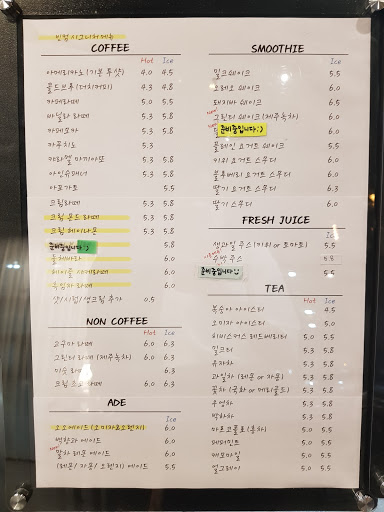 빈컴 시그니처 메뉴
COFFEE
Hot Ice
아메리카노 (기본 투샷) 4.0 4.5
콜드브루 (더치커피) 4.3 4.8
카페라떼 5.0 5.5
바닐라 라떼 5.3 5.8
카페모카 5.3 5.8
카푸치노 5.3
카라멜 마키아또 5.3 5.8
아인슈패너 5.3 5.8
아포가토 5.5
크림라떼 5.3 5.8
크림 몬드 라떼 5.3 5.8
크림 헤이나몬 5.3 5.8
준비중입니다 :) 5.8
돌체라떼 6.0
메이플 라떼 6.0
라떼 6.0
샷/시럽/생크림 추가 0.5
NON COFFEE
Hot Ice
고구마 라떼 6.0 6.3
그린티 라떼 (제주녹차) 6.0 6.3
미숫 라떼 6.3
크림 초코 라떼 6.0 6.3
ADE
Ice
오오에이드 (오미자오렌지) 6.0
청귤 에이드 6.0
new
말차 레몬 에이드 6.0
(레몬/자몽/오렌지) 에이드 5.5
SMOOTHIE
Ice
밀크쉐이크 5.5
오레오 쉐이크 6.0
돼지바 쉐이크 6.5
new
그린티 쉐이크 (제주녹차) 6.0
준비중입니다 :) 6.0
플레인 요거트 스무디 5.5
키위 요거트 스무디 6.0
블루베리 요거트 스무디 6.0
딸기 요거트 스무디 6.3
딸기 스무디 6.0
FRESH JUICE
생과일 주스 (키위 or 토마토) 5.5
수박 주스 5.8
준비중입니다 5.5
TEA
Hot Ice
복숭아 아이스티 4.5
오미자 아이스티 5.0
히비스커스 레드베리티 5.0 5.5
밀크티 5.3 5.8
유자차 5.3 5.8
과일차 (레몬 or 자몽) 5.3 5.8
꽃차 (국화 or 메리골드) 5.3 5.8
우엉차 5.3 5.8
박하차 5.3 5.8
마르코폴로 (홍차) 5.0 5.5
페퍼민트 5.0 5.5
캐모마일 5.0 5.5
얼그레이 5.0 5.5